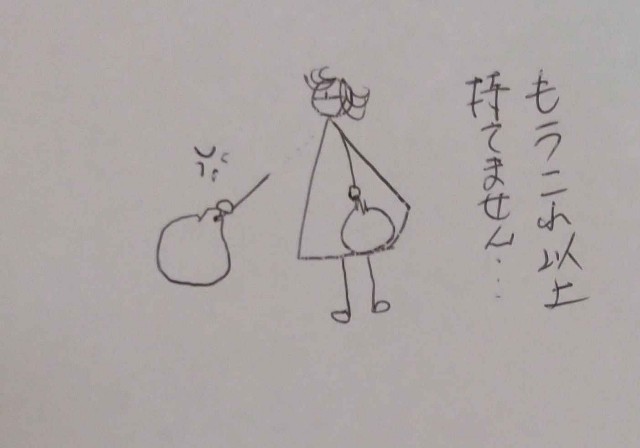 もうこれ以上
持てません…